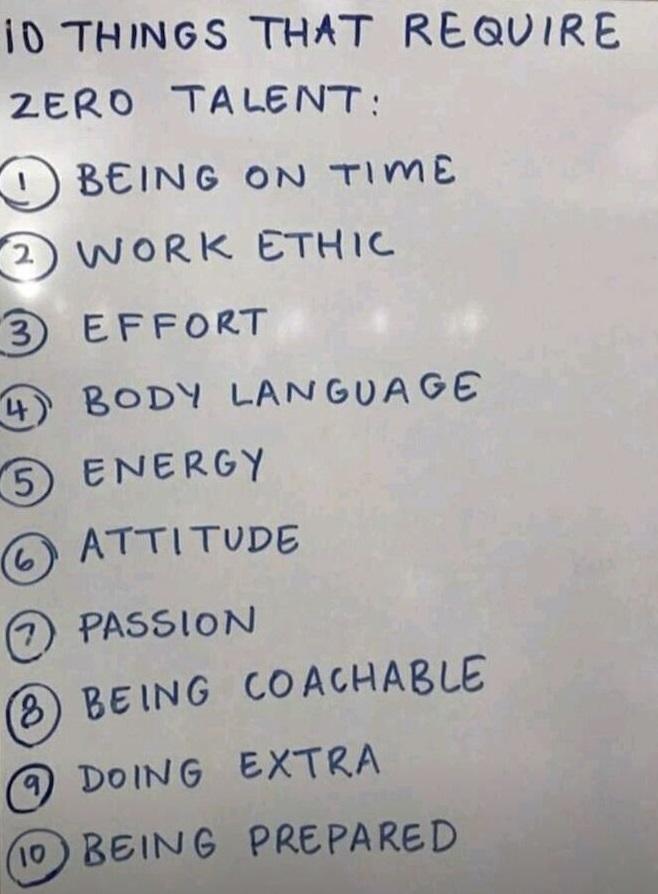 10 THINGS THAT REQUIRE
ZERO TALENT:
1 BEING ON TIME
2 WORK ETHIC
3 EFFORT
4 BODY LANGUAGE
5 ENERGY
6 ATTITUDE
7 PASSION
8 BEING COACHABLE
9 DOING EXTRA
10 BEING PREPARED